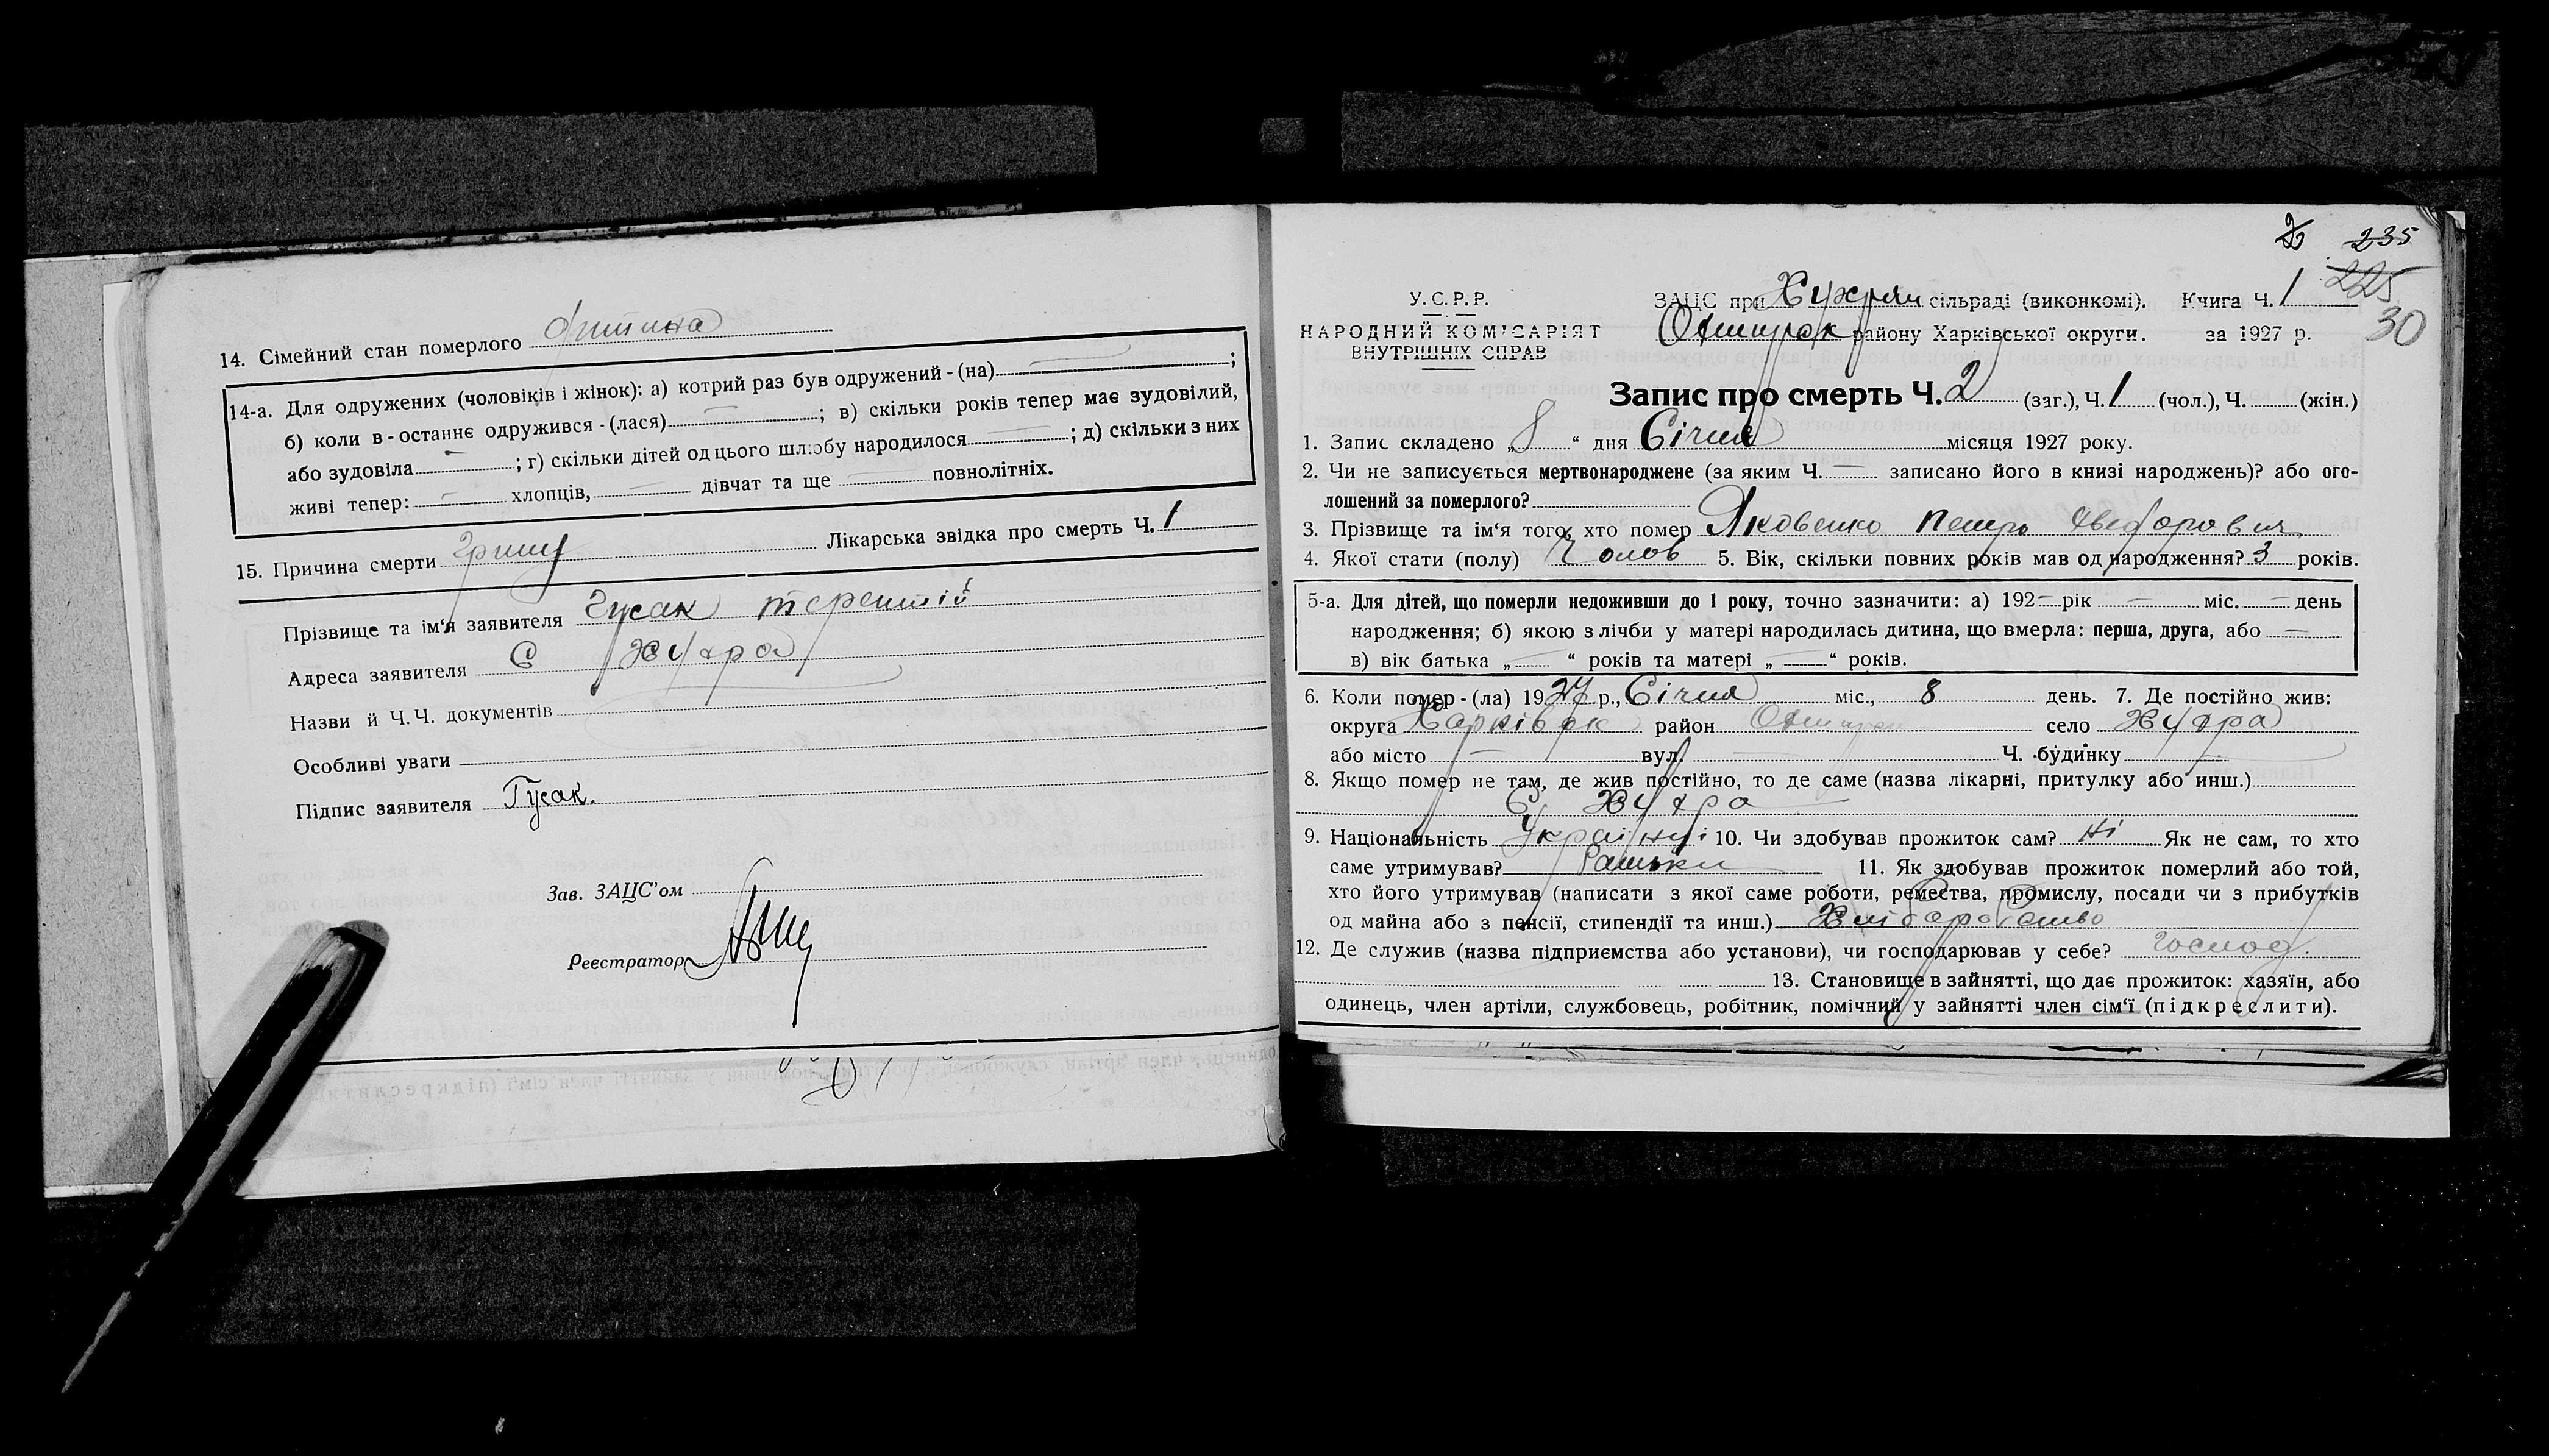 14. Сімейний стан померлого дитина
14-а. Для одружених (чоловіків і жінок): а) котрий раз був одружений - (на) ;
б) коли в - останнє одружився - (лася) — ; в) скільки років тепер має зудовілий,
або зудовіла — ; г) скільки дітей од цього шлюбу народилося — ; д) скільки з них
живі тепер: — хлопців, — дівчат та ще — повнолітніх.
15. Причина смерти Лікарська звідка про смерть Ч. 1
Прізвище та ім'я заявителя Гусак терентій
Адреса заявителя С Хухра
Назви й Ч. Ч. документів
Особливі уваги
Підпис заявителя Гусак.
Зав. ЗАЦС'ом
Реєстратор
235
225
30
У. С. Р. Р.
НАРОДНИЙ КОМІСАРІЯТ
ВНУТРІШНІХ СПРАВ
ЗАЦС при Хухрян сільраді (виконкомі). Книга Ч. 1
Охтирск району Харківської округи. за 1927 р.
Запис про смерть Ч. 2 (заг.), Ч. 1 (чол.), Ч. (жін.)
1. Запис складено „8“ дня Січня місяця 1927 року.
2. Чи не записується мертвонароджене (за яким Ч. — записано його в книзі народжень)? або ого-
лошений за померлого?
3. Прізвище та ім'я того, хто помер Яковенко Петро Хведорович
4. Якої стати (полу) Чолов 5. Вік, скільки повних років мав од народження? 3 років.
5-а. Для дітей, що померли недоживши до 1 року, точно зазначити: а) 192— рік — міс. — день
народження; б) якою з лічби у матері народилась дитина, що вмерла: перша, друга, або —
в) вік батька „—“ років та матері „—“ років.
6. Коли помер - (ла) 1927 р., Січня міс., 8 день. 7. Де постійно жив:
округа Харківск район Охтирск село Хухра
або місто — вул. — Ч. будинку
8. Якщо помер не там, де жив постійно, то де саме (назва лікарні, притулку або инш.)
С. Хухра
9. Національність Українці 10. Чи здобував прожиток сам? Ні Як не сам, то хто
саме утримував? Батьки 11. Як здобував прожиток померлий або той,
хто його утримував (написати з якої саме роботи, ремества, промислу, посади чи з прибутків
од майна або з пенсії, стипендії та инш.) Хліборобство
12. Де служив (назва підприємства або установи), чи господарював у себе? господ.
13. Становище в зайнятті, що дає прожиток: хазяїн, або
одинець, член артіли, службовець, робітник, помічний у зайнятті член сім'ї (підкреслити).